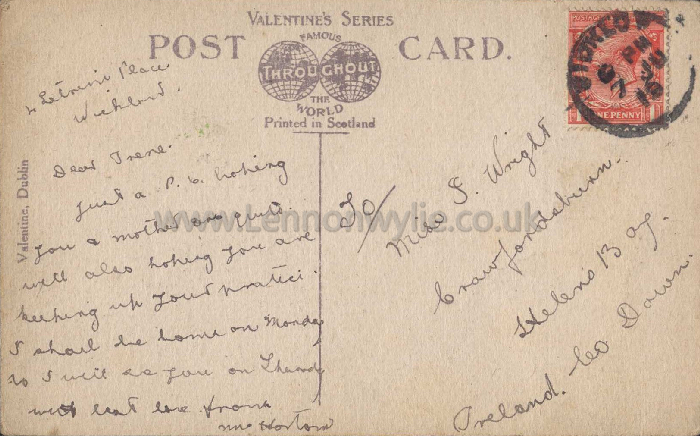 VALENTINE'S SERIES
POST CARD.
FAMOUS
THROUGHOUT
THE
WORLD
Printed in Scotland
Valentine, Dublin
WICKLOW
PM
ONE PENNY
www.Lennonwylie.co.uk
Place
Wicklow.
Dear Irene.
Just a P. C. hoping
you & mother are quite
well also hoping you are
keeping up your practice.
I shall be home on Monday
so I will see you on
with best love from
Mrs Horton
To/
Miss I. Wright
Crawfordsburn.
Helens Bay.
Co Down.
Ireland.